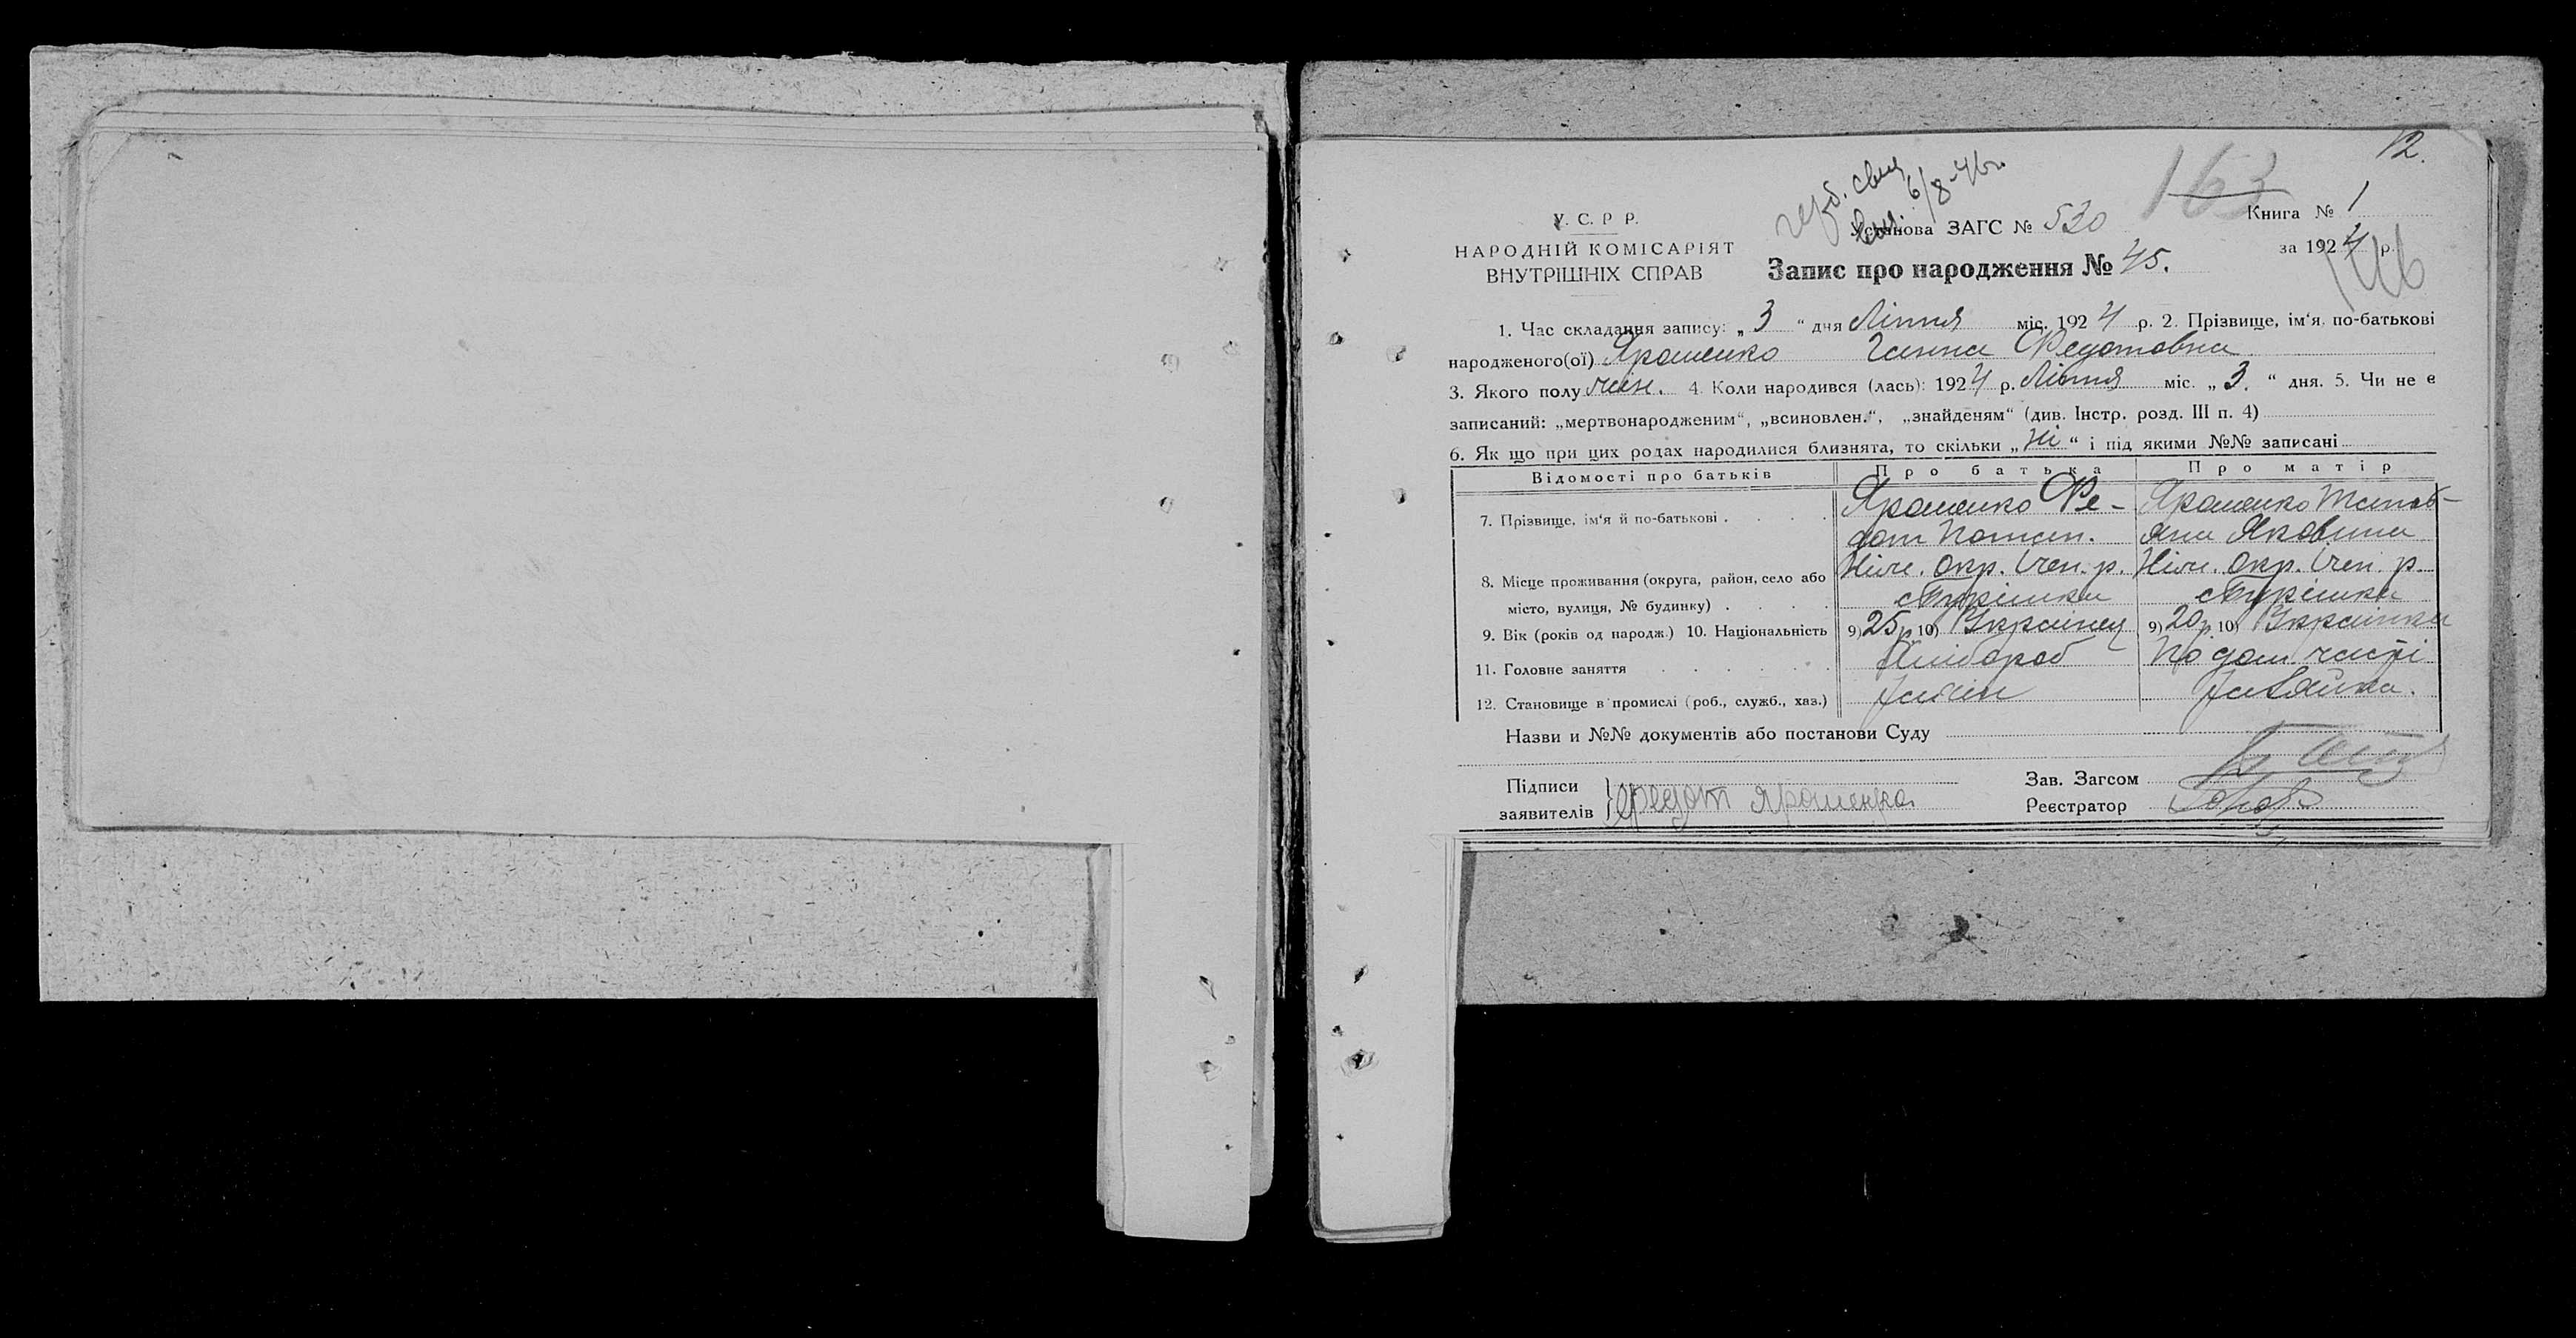 12.
163
герб. свид
вид. 6/8-46г.
У. С. Р. Р.
НАРОДНІЙ КОМІСАРІЯТ
ВНУТРІШНІХ СПРАВ
Установа ЗАГС № 530
Книга № 1
за 1924 р.
146
Запис про народження № 45.
1. Час складання запису: „3“ дня Ліпня міс. 1924 р. 2. Прізвище, ім‘я, по-батькові
народженого(ої) Ярошенко Ганна Федотовна
3. Якого полу жін. 4. Коли народився (лась): 1924 р. Ліпня міс. „3.“ дня. 5. Чи не є
записаний: „мертвонародженим“, „всиновлен.“, „знайденям“ (див. Інстр. розд. III п. 4)
6. Як що при цих родах народилися близнята, то скільки „ні“ і під якими №№ записані
Відомості про батьків Про батька Про матір
7. Прізвище, ім‘я й по-батькові Ярошенко Фе-
дот Потап. Ярошенко Тать-
яна Яковина
8. Місце проживання (округа, район, село або
місто, вулиця, № будинку)
Ніж. Окр. Ічен. р. Ніж. Окр. Ічен. р.
9. Вік (років од народж.) 10. Національність 9) 25 р. 10) Українец 9) 20 р. 10) Українка
11. Головне заняття Хлібороб По дом. части
12. Становище в промислі (роб., служб., хаз.) Хазяін Хазяйка.
Назви и №№ документів або постанови Суду
Підписи
заявителів Федот Ярошенко
Зав. Загсом
Реєстратор